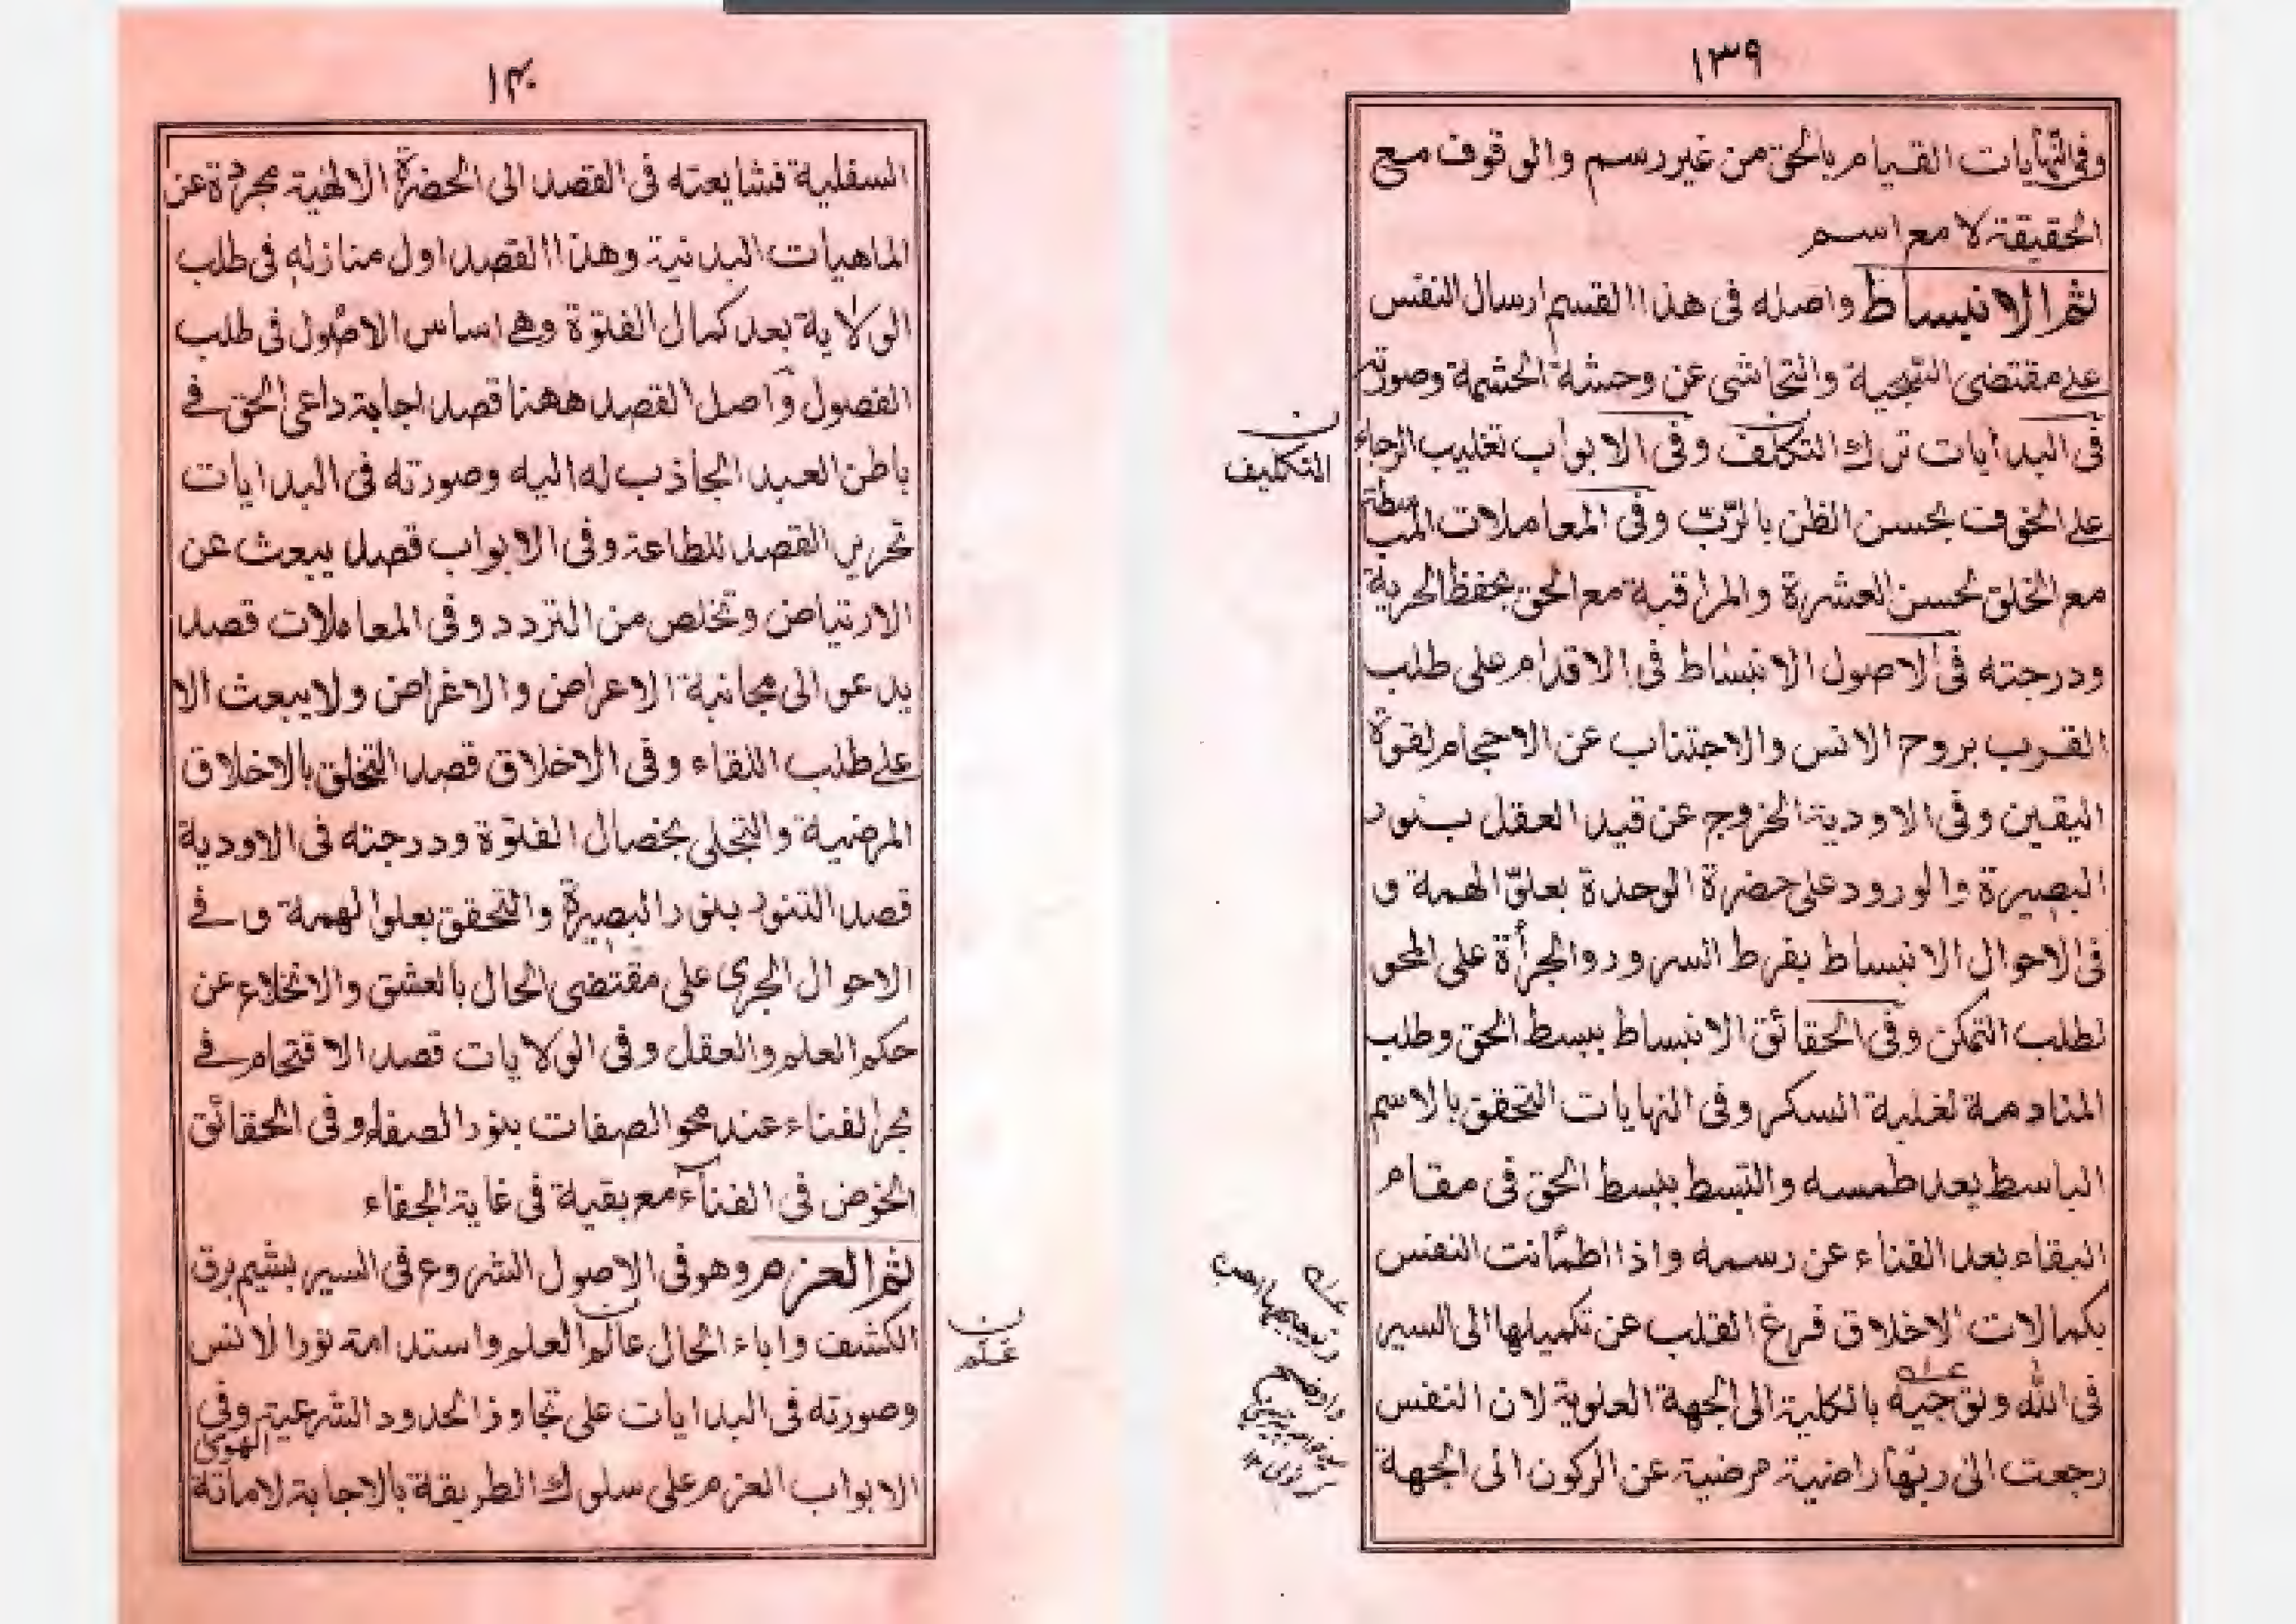 ١٣٩
وفى النهايات القيام بالحق من غير رسم والوقوف مع
الحقيقة لا مع اسم
ثم الانبساط واصله فى هذا القسم ارسال النفس
على مقتضى السجية والتحاشى عن وحشة الحشمة وصورته
فى البدايات ترك التكلف وفى الابواب تغليب الرجاء
على الخوف بحسن الظن بالرّبّ وفى المعاملات
مع الخلق بحسن العشرة والمراقبة مع الحق بحفظ الحرية
ودرجته فى الاصول الانبساط فى الاقدام على طلب
القرب بروح الانس والاجتناب عن الاحجام لقوة
اليقين وفى الاودية الخروج عن قيد العقل بنور
البصيرة والورود على حضرة الوحدة بعلوّ الهمة و
فى الاحوال الانبساط بفرط السرور والجرأة على المحو
لطلب التمكن وفى الحقائق الانبساط ببسط الحق وطلب
المنادمة لغلبة السكر وفى النهايات التحقق بالاسم
الباسط بعد طمسه والتبسط ببسط الحق فى مقام
البقاء بعد الفناء عن رسمه واذا اطمأنت النفس
بكمالات الاخلاق فرغ القلب عن تكميلها الى السير
فى الله وتوجيه بالكلية الى الجهة العلوية لان النفس
رجعت الى ربّها راضية مرضية عن الركون الى الجهة
ن
التكليف
١٤٠
السفلية فشايعته فى القصد الى الحضرة الالهية مجردة عن
الماهيأت البدنية وهذا القصد اول منازله فى طلب
الولاية بعد كمال الفتوة وهى اساس الاصول فى طلب
الفصول واصل القصد ههنا قصد اجابة داعى الحق فى
باطن العبد الجاذب له اليه وصورته فى البدايات
تحرير القصد للطاعة وفى الابواب قصد يبعث عن
الارتياض وتخلص من التردد وفى المعاملات قصد
يدعو الى مجانبة الاعراض والاغراض ولا يبعث الا
على طلب اللقاء وفى الاخلاق قصد التخلق بالاخلاق
المرضية والتحلى بخصال الفتوة ودرجته فى الاودية
قصد التنور بنور البصيرة والتحقق بعلو الهمة و فى
الاحوال الجرى على مقتضى الحال بالعشق والانخلاع عن
حكم العلم والعقل وفى الولايات قصد الاقتحام فى
بحر الفناء عند محو الصفات بنور الصفاء وفى الحقائق
الخوض فى الفناء مع بقية فى غاية الخفاء
ثم العزم وهو فى الاصول الشروع فى السير بشيم برق
الكشف واباء الحال عالم العلم واستدامة نور الانس
وصورته فى البدايات على تجاوز الحدود الشرعية وفى
الابواب العزم على سلوك الطريقة بالاجابة لاماتة الهوى
ن
علم